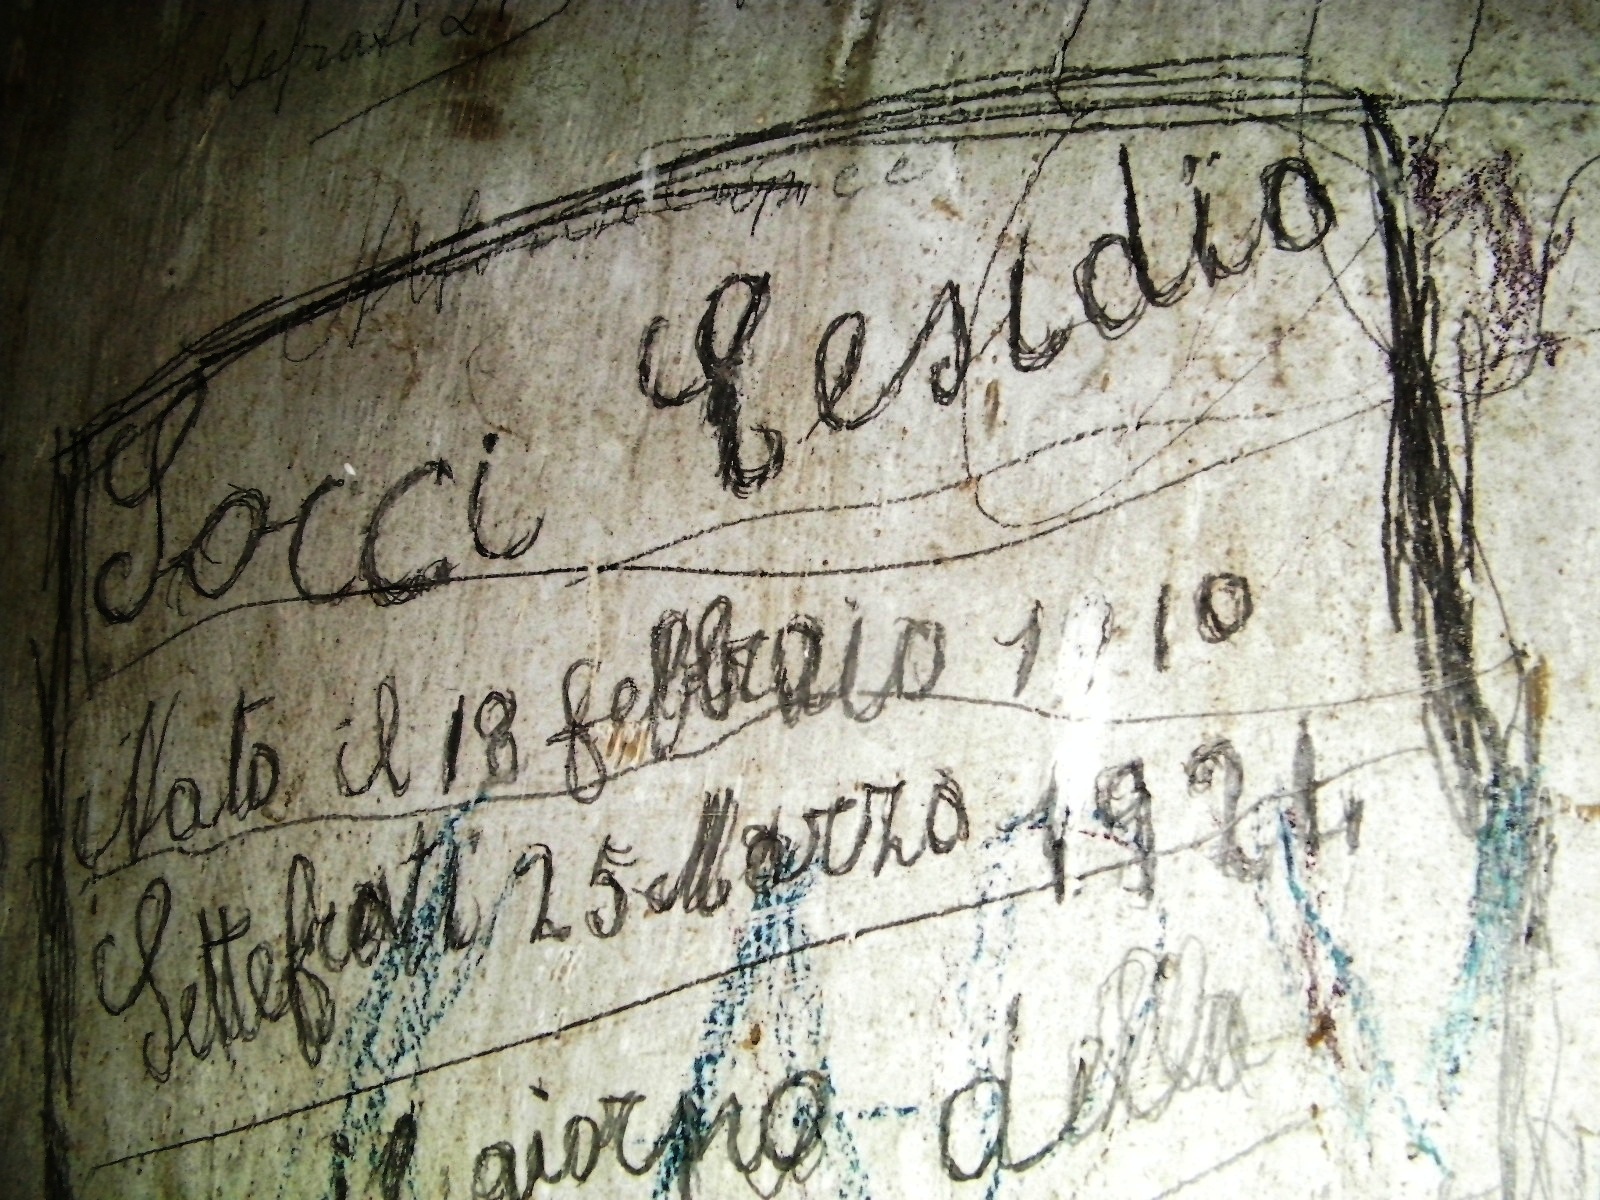 Settefrati
Socci Gesidio
Nato il 18 febbraio 1910
Settefrati 25 Marzo 1921
il giorno della